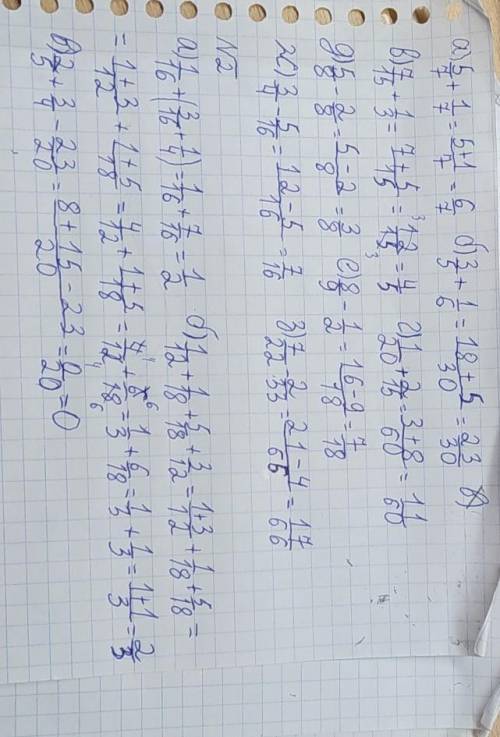 а) 5/7 + 1/7 = 5+1/7 = 6/7 б) 3/5 + 1/6 = 18+5/30 = 23/30
в) 7/15 + 1/3 = 7+5/15 = 12/15 = 4/5 г) 1/20 + 2/15 = 3+8/60 = 11/60
д) 5/8 - 2/8 = 5-2/8 = 3/8 е) 8/9 - 1/2 = 16-9/18 = 7/18
ж) 3/4 - 5/16 = 12-5/16 = 7/16 з) 7/22 - 2/33 = 21-4/66 = 17/66
N2
а) 1/16 + (3/16 + 1/4) = 1/16 + 7/16 = 1/2 б) 1/12 + 1/18 + 5/18 + 3/12 = 1+3/12 + 1/18 + 5/18 =
= 1+3/12 + 1+5/18 = 4/12 + 1+5/18 = 4/12 + 6/18 = 1/3 + 6/18 = 1/3 + 1/3 = 1+1/3 = 2/3
в) 2/5 + 3/4 - 23/20 = 8+15-23/20 = 0/20 = 0